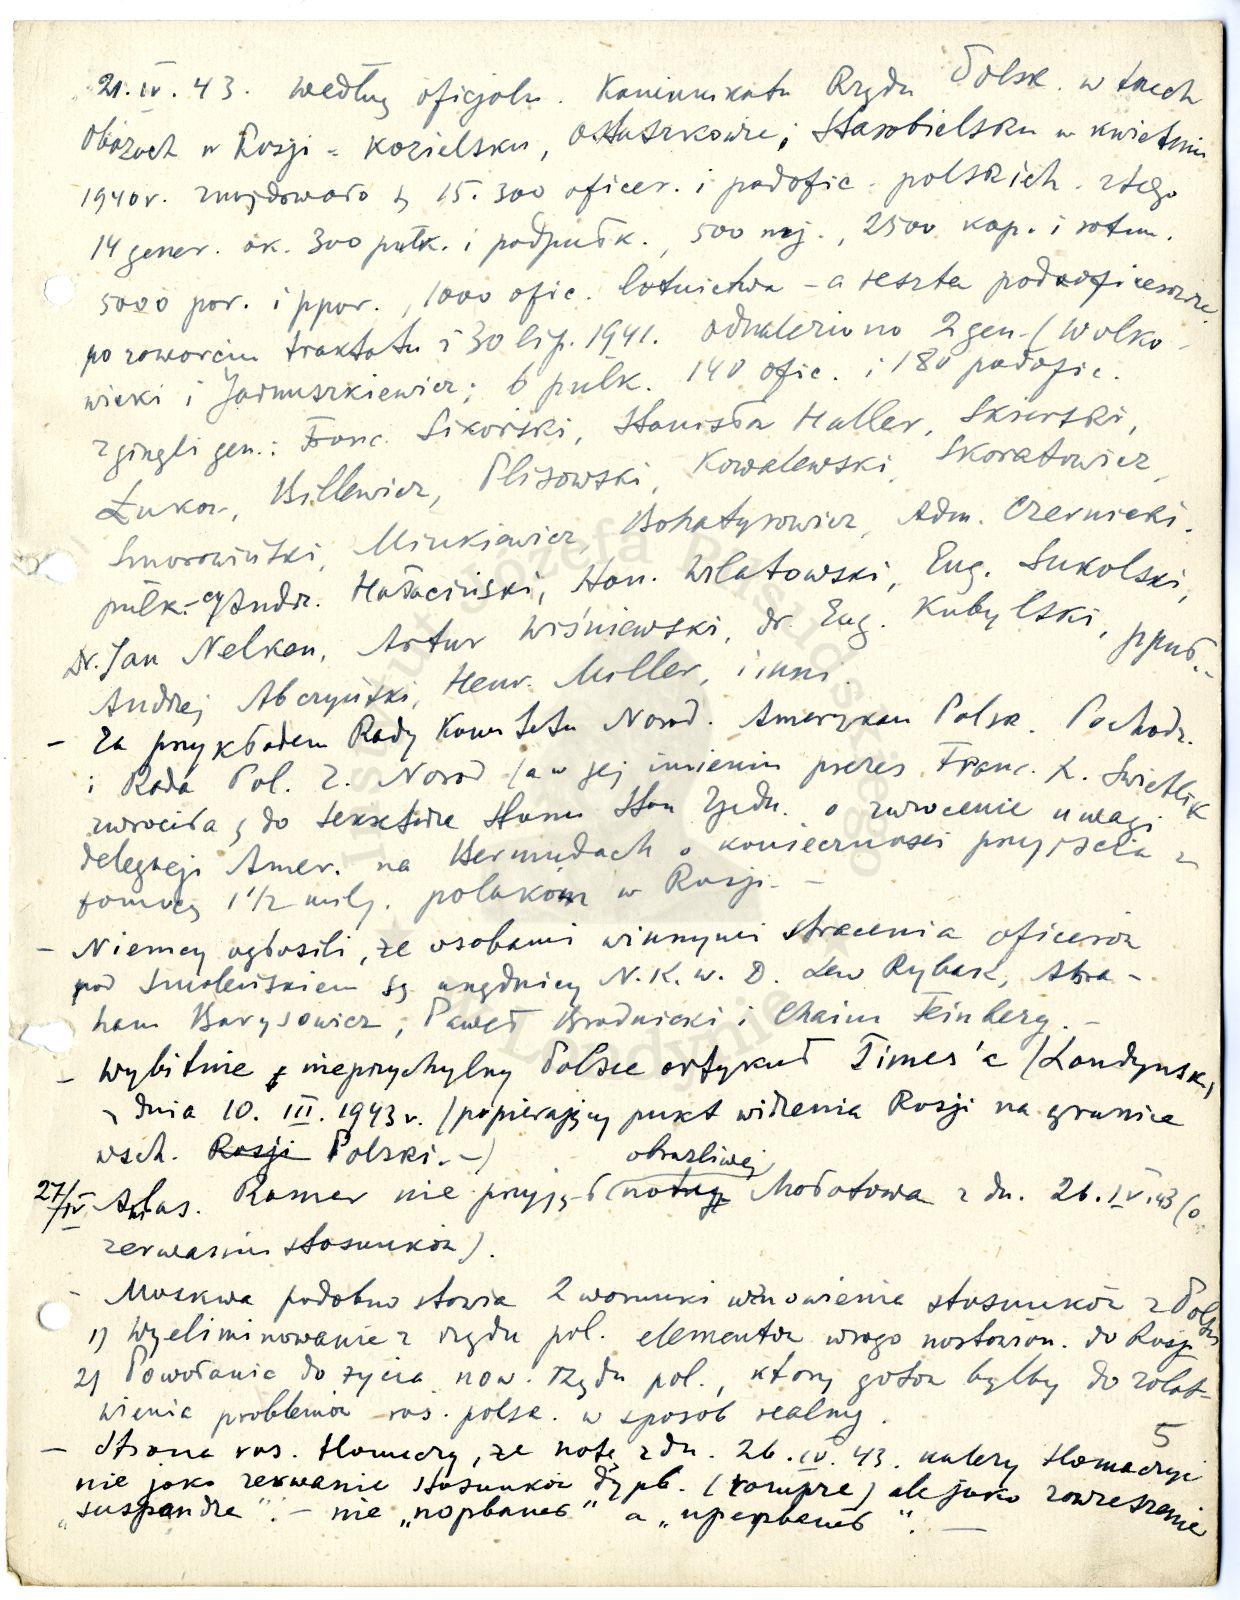 21.IV.43. Według oficjaln. Komunikatu Rządu Polsk. w trzech
obozach w Rosji - Kozielsku, Ostaszkowie i Starobielsku w kwietniu
1940r. znajdowało się 15.300 oficer. i podofic. polskich. z tego
14 gener. ok. 300 pułk. i podpułk., 500 mj., 2500 kap. i rotm.
5000 por. i ppor., 1000 ofic. lotnictwa - a reszta podoficerowie.
po zawarciu traktatu i 30 lip. 1941. odnaleziono 2 gen. (Wołko-
wicki i Jarnuszkiewicz; 6 pułk. 140 ofic. i 180 podofic.
zginęli gen.: Franc. Sikorski, Stanisław Haller, Skierski,
Łukow, Billewicz, Plisowski, Kowalewski, Skoratowicz,
Smorowiński, Minkiewicz, Bohatyrowicz, Adm. Czernicki.
pułk-cy Andr. Hałaciński, Stan. Wilatowski, Eug.
Dr. Jan Nelken, Artur Wiśniewski, dr. Eug. ppuł.-
Andrzej Abczyński, Henr. Miller, i inni.
- Za przykładem Rady Komitetu Narod. Amerykan Polsk. Pochodz.
i Rada Pol. Z. Narod (a w jej imieniu prezes Franc. X. Swietlik
zwróciła się do sekretarza Stanu Stan Zjedn. o zwrócenie uwagi
delegacji Amer. na Bermudach o konieczności przyjścia z
pomocą 1 1/2 milj. polaków w Rosji. -
- Niemcy ogłosili, że osobami winnymi stracenia oficerów
pod Smoleńskiem są urzędnicy N.K.W.D. Lew Rybak, Abra-
ham Borysowicz, Paweł Brodnicki i Chaim Feinberg. -
- Wybitnie nieprzychylny Polsce artykuł Times'a (Londynsk.)
z dnia 10.III.1943r. (popierający pukt widzenia Rosji na granice
wsch. Rosji Polski. -)
obraźliwej
27/IV Ambas. Romer nie przyjął (notę Mołotowa z dn. 26.IV.43 (o
zerwaniu stosunków).
- Moskwa podobno stawia 2 warunki wznowienia stosunków z Polską
1) Wyeliminowanie z rządu pol. elementów wrogo nastawion. do Rosji
2) Powołanie do życia now. rządu pol., który gotów byłby do załat-
wienia problemów ros. polsk. w sposób realny.
5
- Strona ros. tłomaczy, że notę z dn. 26.IV.43. należy tłomaczyć
nie jako zerwanie stosunków dypl. (rompre) ale jako zawieszenie
"suspendre". - nie "порвать" a "прервать". -